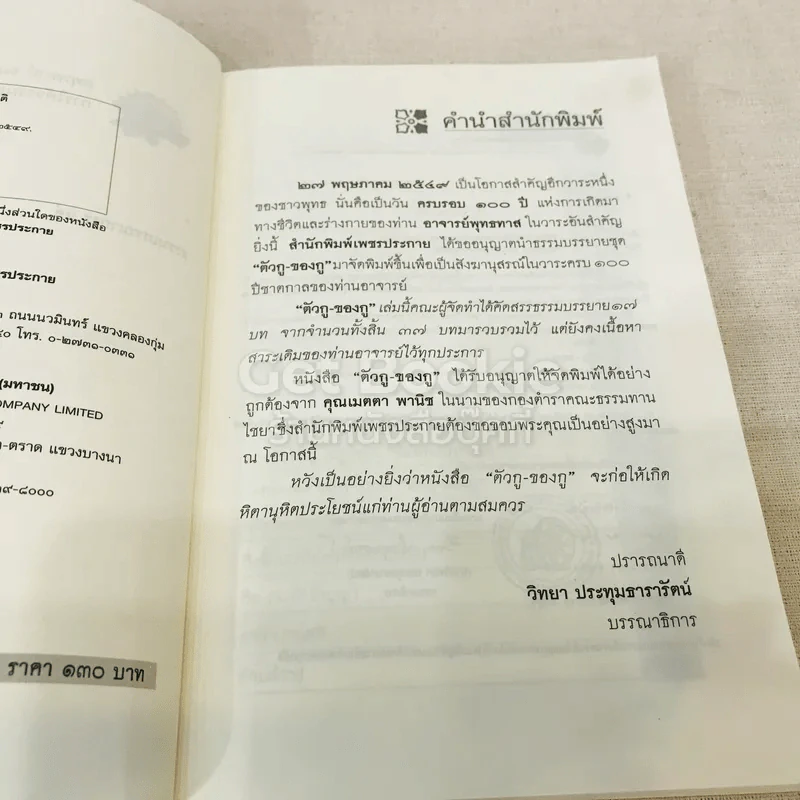 ติ
๒๕๔๙.
นึ่งส่วนใดของหนังสือ
ชรประกาย
ชรประกาย
๑ ถนนนวมินทร์ แขวงคลองกุ่ม
๔๐ โทร. ๐-๒๗๓๑-๐๓๓๑
(มหาชน)
OMPANY LIMITED
-ตราด แขวงบางนา
๓๙-๘๐๐๐
ราคา ๑๓๐ บาท
คำนำสำนักพิมพ์
๒๗ พฤษภาคม ๒๕๔๙ เป็นโอกาสสำคัญอีกวาระหนึ่ง
ของชาวพุทธ นั่นคือเป็นวัน ครบรอบ ๑๐๐ ปี แห่งการเกิดมา
ทางชีวิตและร่างกายของท่าน อาจารย์พุทธทาส ในวาระอันสำคัญ
ยิ่งนี้ สำนักพิมพ์เพชรประกาย ได้ขออนุญาตนำธรรมบรรยายชุด
“ตัวกู-ของกู” มาจัดพิมพ์ขึ้นเพื่อเป็นสังฆานุสรณ์ในวาระครบ ๑๐๐
ปีชาตกาลของท่านอาจารย์
“ตัวกู-ของกู” เล่มนี้คณะผู้จัดทำได้คัดสรรธรรมบรรยาย๑๗
บท จากจำนวนทั้งสิ้น ๓๗ บทมารวบรวมไว้ แต่ยังคงเนื้อหา
สาระเดิมของท่านอาจารย์ไว้ทุกประการ
หนังสือ “ตัวกู-ของกู” ได้รับอนุญาตให้จัดพิมพ์ได้อย่าง
ถูกต้องจาก คุณเมตตา พานิช ในนามของกองตำราคณะธรรมทาน
ไชยาซึ่งสำนักพิมพ์เพชรประกายต้องขอขอบพระคุณเป็นอย่างสูงมา
ณ โอกาสนี้
หวังเป็นอย่างยิ่งว่าหนังสือ “ตัวกู-ของกู” จะก่อให้เกิด
หิตานุหิตประโยชน์แก่ท่านผู้อ่านตามสมควร
ปรารถนาดี
วิทยา ประทุมธารารัตน์
บรรณาธิการ
Get Bookie
ร้านหนังสือบุ๊คกี้